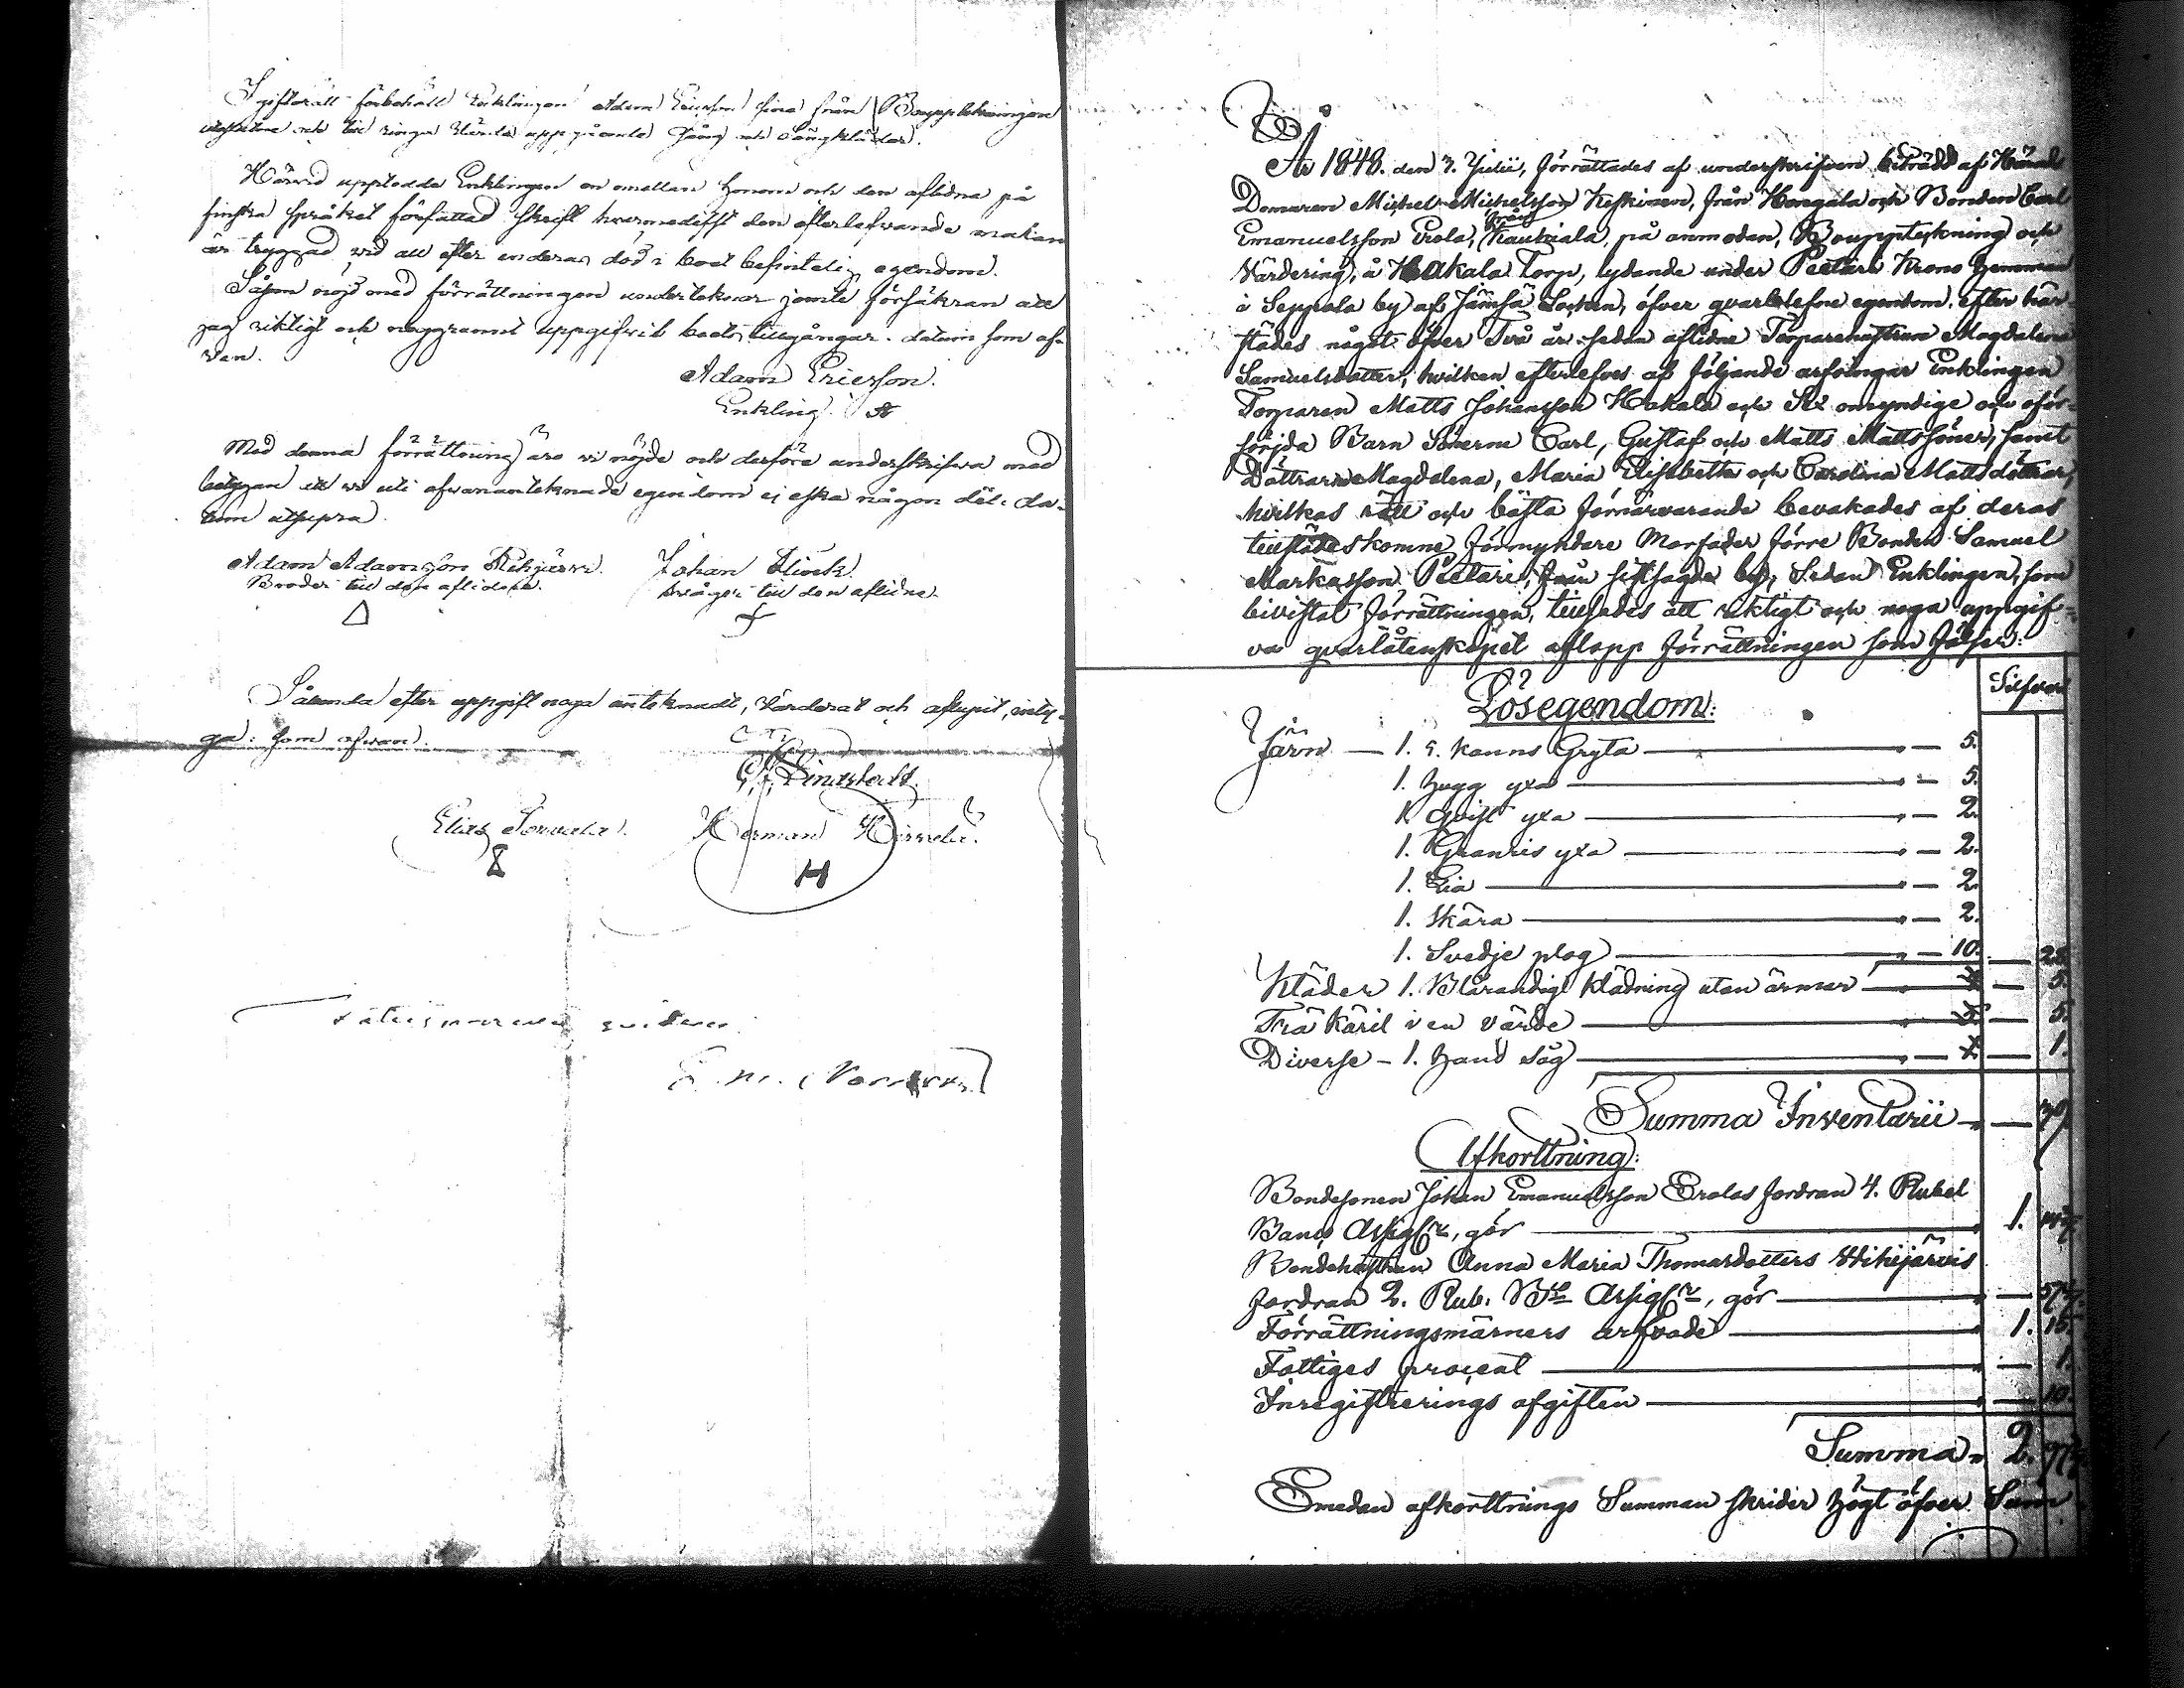 I giftorätt förbehåll Enklingen Adam Ericsson sina från Bouppteckningen
uteslutna och till ringa värde uppgående Säng och Sängkläder.
Härvid upptedde Enklingen en emellan honom och den aflidna på
finska språket författad skrift hvarmedelst den efterlefvande makan
är tryggad vid all efter enderas död i boet befintelig egendom.
Såsom nöjd med förrättningen undertecknar jemte försäkran att
jag riktigt och noggrannt uppgifvit boets tillgångar. datum som of-
van.
Adam Ericsson.
Enkling.
Med denna förrättning äro vi nöjde och derföre underskrifva med
betygan att vi uti ofvanantecknade egendom ej äska någon del. da-
tum utsupra.
Adam Adamsson Johan Flinck
Broder till den aflidne. Svåger till den aflidne.
Sålunda efter uppgift noga antecknadt, Värderat och aflupit, inty-
ga: som ofvan.
Lindstedt.
Elias Herman
H
År 1848. den 3. Julii, förrättades af underskrifven biträdd af Härad
Domaren Michel Michelsson Keskinen, från Hongala och Bonden Carl
Emanuelsson Erola, från Kaukiala, på anmodan, Bouppteckning och
Värdering, å Hakala Torp, lydande under Peetari Krono hemman
i Seppola by af Jämsä Socken, öfver qvarblefne egendom, efter här-
städes något öfver Två år sedan aflidne Torparehustrun Magdalena
Samuelsdotter, hvilken efterlefves af följande arfvingar Enklingen
Torparen Matts Johansson Hakala och Sex omyndige och oför-
sörjda Barn Sönerne Carl, Gustaf och Matts Mattssöner, samt
Döttrarne Magdalena, Maria Elisabeth och Carolina Mattsdöttrar,
hvilkas rätt och bästa förnärvarande bevakades af deras
tillstädeskomne Förmyndare Morfader förre Bonden Samuel
Markusson Peetari, från sistsagde by, Sedan Enklingen, som
bivistat förrättningen, tillsades att riktigt och noga uppgif-
va qvarlåtenskapet aflopp förrättningen som följer:
Lösegendom: Silfver
Järn — 1. 5. kanns Gryta — 5.
1. hugg yxa — 5.
1. Qvist yxa — 2.
1. Granris yxa — 2.
1. Lia — 2.
1. Skära — 2.
1. Svedje plog — 10. 28.
Kläder 1. Blårandigt klädning utan ärmar — 5.
Trä Käril i en värde — 5.
Diverse — 1. hand såg — 1.
Summa Inventarii — 39.
Afkorttning:
Bondesonen Johan Emanuelsson Erolas fordran 4. Rubel
Banco Assigr, gör — 1.
Bondehustrun Anna Maria Thomasdotters Wihijärvis
fordran 2. Rub. Bco Assigr, gör — 57
Förrättningsmänners arfvode — 1. 15.
Fattiges procent — 1.
Inregistrerings afgiften — 10.
Summa 2.
Emedan afkorttnings Summan skrider högt öfver Sum